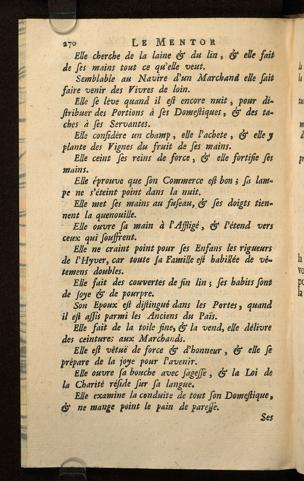 270 LE MENTOR
Elle cherche de la laine & du lin, & elle fait
de ses mains tout ce qu'elle veut.
Semblable au Navire d'un Marchand elle sait
faire venir des Vivres de loin.
Elle se leve quand il est encore nuit, pour di-
stribuer des Portions à ses Domestiques, & des ta-
ches à ses Servantes.
Elle considére un champ, elle l'achete, & elle y
plante des Vignes du fruit de ses mains.
Elle ceint ses reins de force, & elle fortifie ses
mains.
Elle éprouve que son Commerce est bon; sa lam-
pe ne s'éteint point dans la nuit.
Elle met ses mains au fuseau, & ses doigts tien-
nent la quenouille.
Elle ouvre sa main à l'Affligé, & l'étend vers
ceux qui souffrent.
Elle ne craint point pour ses Enfans les rigueurs
de l'Hyver, car toute sa Famille est habillée de vê-
temens doubles.
Elle fait des couvertes de fin lin; ses habits sont
de soye & de pourpre.
Son Epoux est distingué dans les Portes, quand
il est assis parmi les Anciens du Païs.
Elle fait de la toile fine, & la vend, elle délivre
des ceintures aux Marchands.
Elle est vêtuë de force & d'honneur, & elle se
prépare de la joye pour l'avenir.
Elle ouvre sa bouche avec sagesse, & la Loi de
la Charité réside sur sa langue.
Elle examine la conduite de tout son Domestique,
& ne mange point le pain de paresse.
Ses